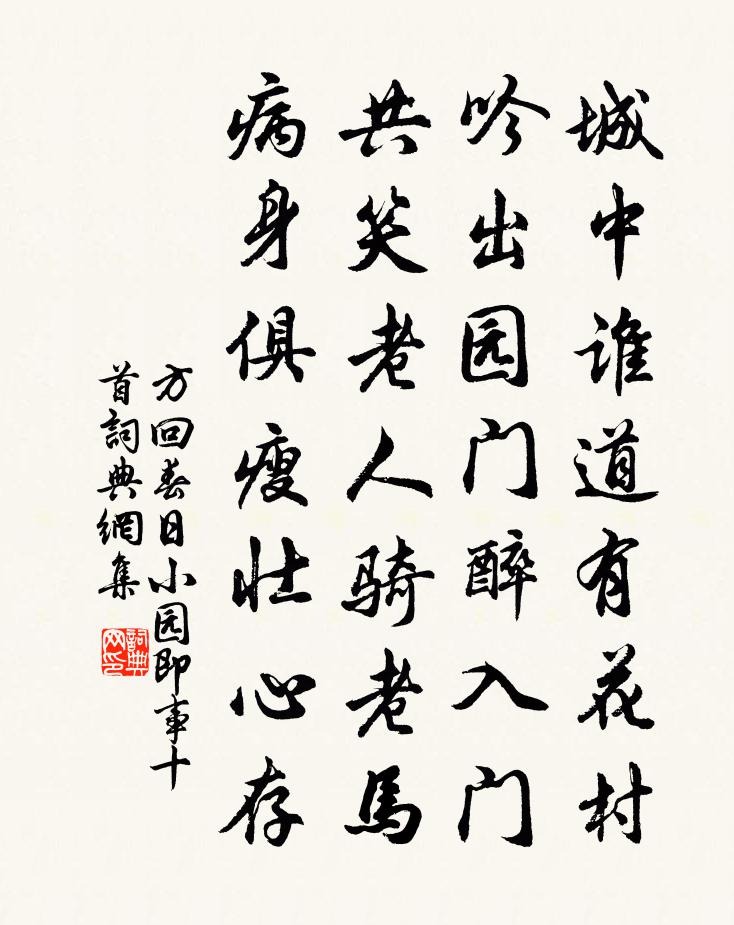 城中谁道有花村
吟出园门醉入门
共笑老人骑老馬
病身俱瘦壮心存
方回春日小园即事十
首詞典網集
詞典
网印